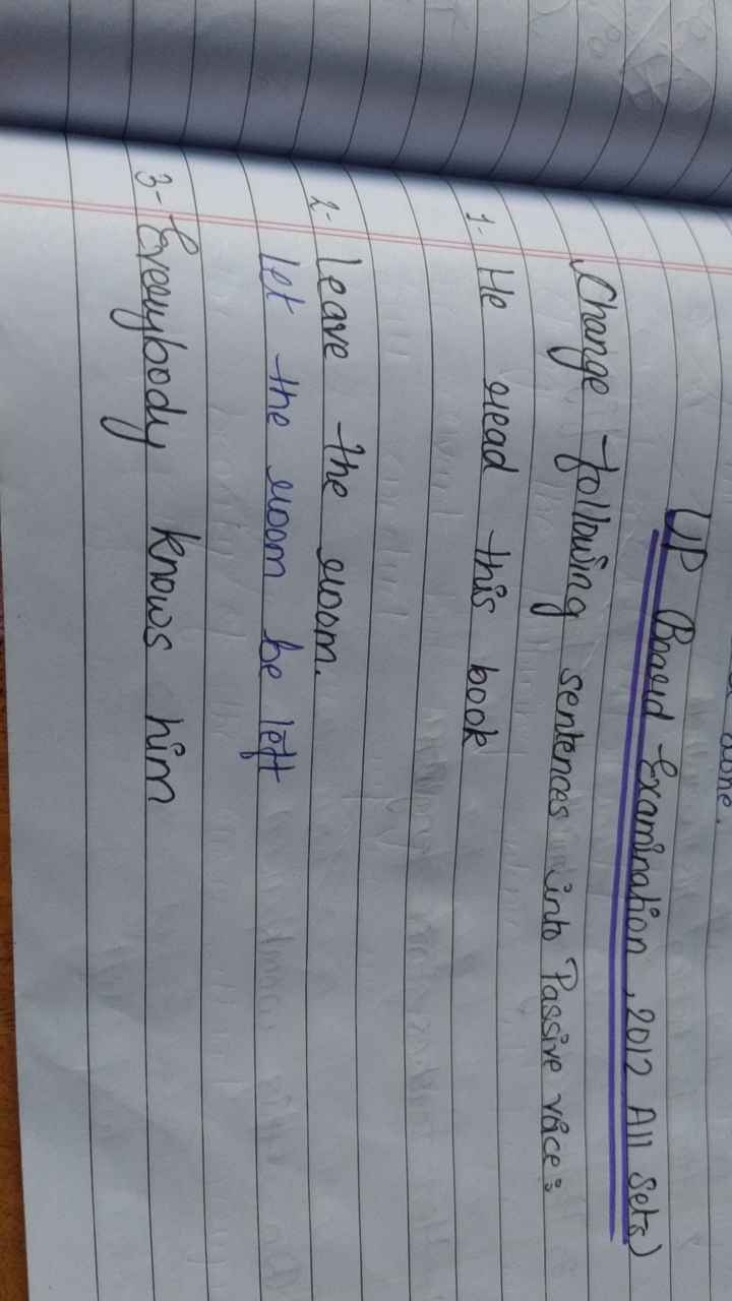 UP Board Examination, 2012 All Sets)
Change following sentences into Passive voice:
1- He read this book
2- Leave the room.
Let the room be left
3- Everybody knows him